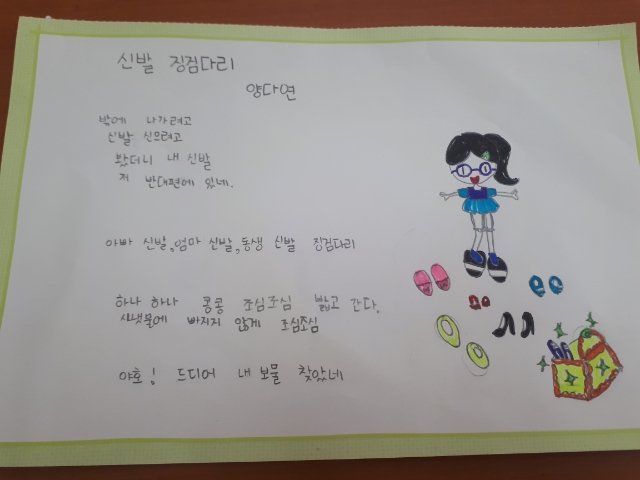 신발 징검다리
양다연
밖에 나가려고
신발 신으려고
봤더니 내 신발
저 반대편에 있네.
아빠 신발, 엄마 신발, 동생 신발 징검다리
하나 하나 콩콩 조심조심 밟고 간다.
시냇물에 빠지지 않게 조심조심
야호! 드디어 내 보물 찾았네